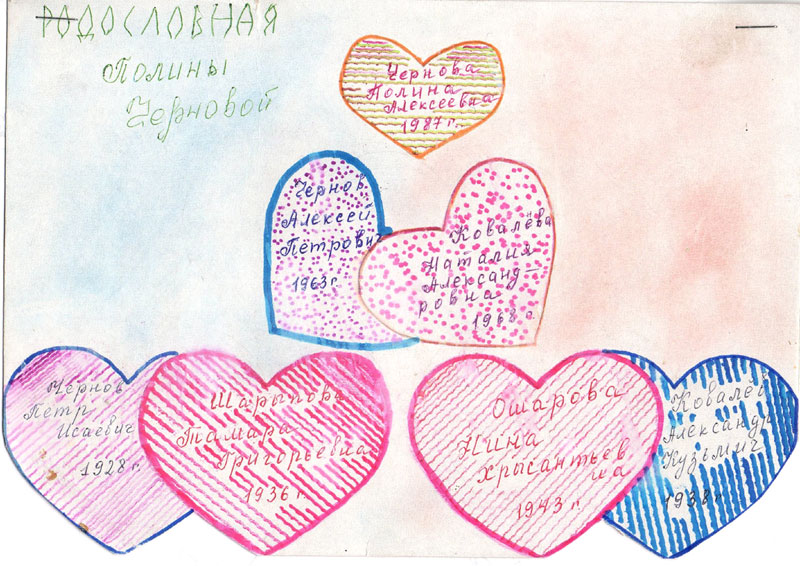 РОДОСЛОВНАЯ
Полины
Черновой
Чернова
Полина
Алексеевна
1987 г.
Чернов
Алексей
Петрович
1963 г.
Ковалёва
Наталия
Александ-
ровна
1968 г.
Чернов
Петр
Исаевич
1928 г.
Шарыпова
Тамара
Григорьевна
1936 г.
Ошарова
Нина
Хрысантьев
на
1943 г.
Ковалёв
Александр
Кузьмич
1938 г.